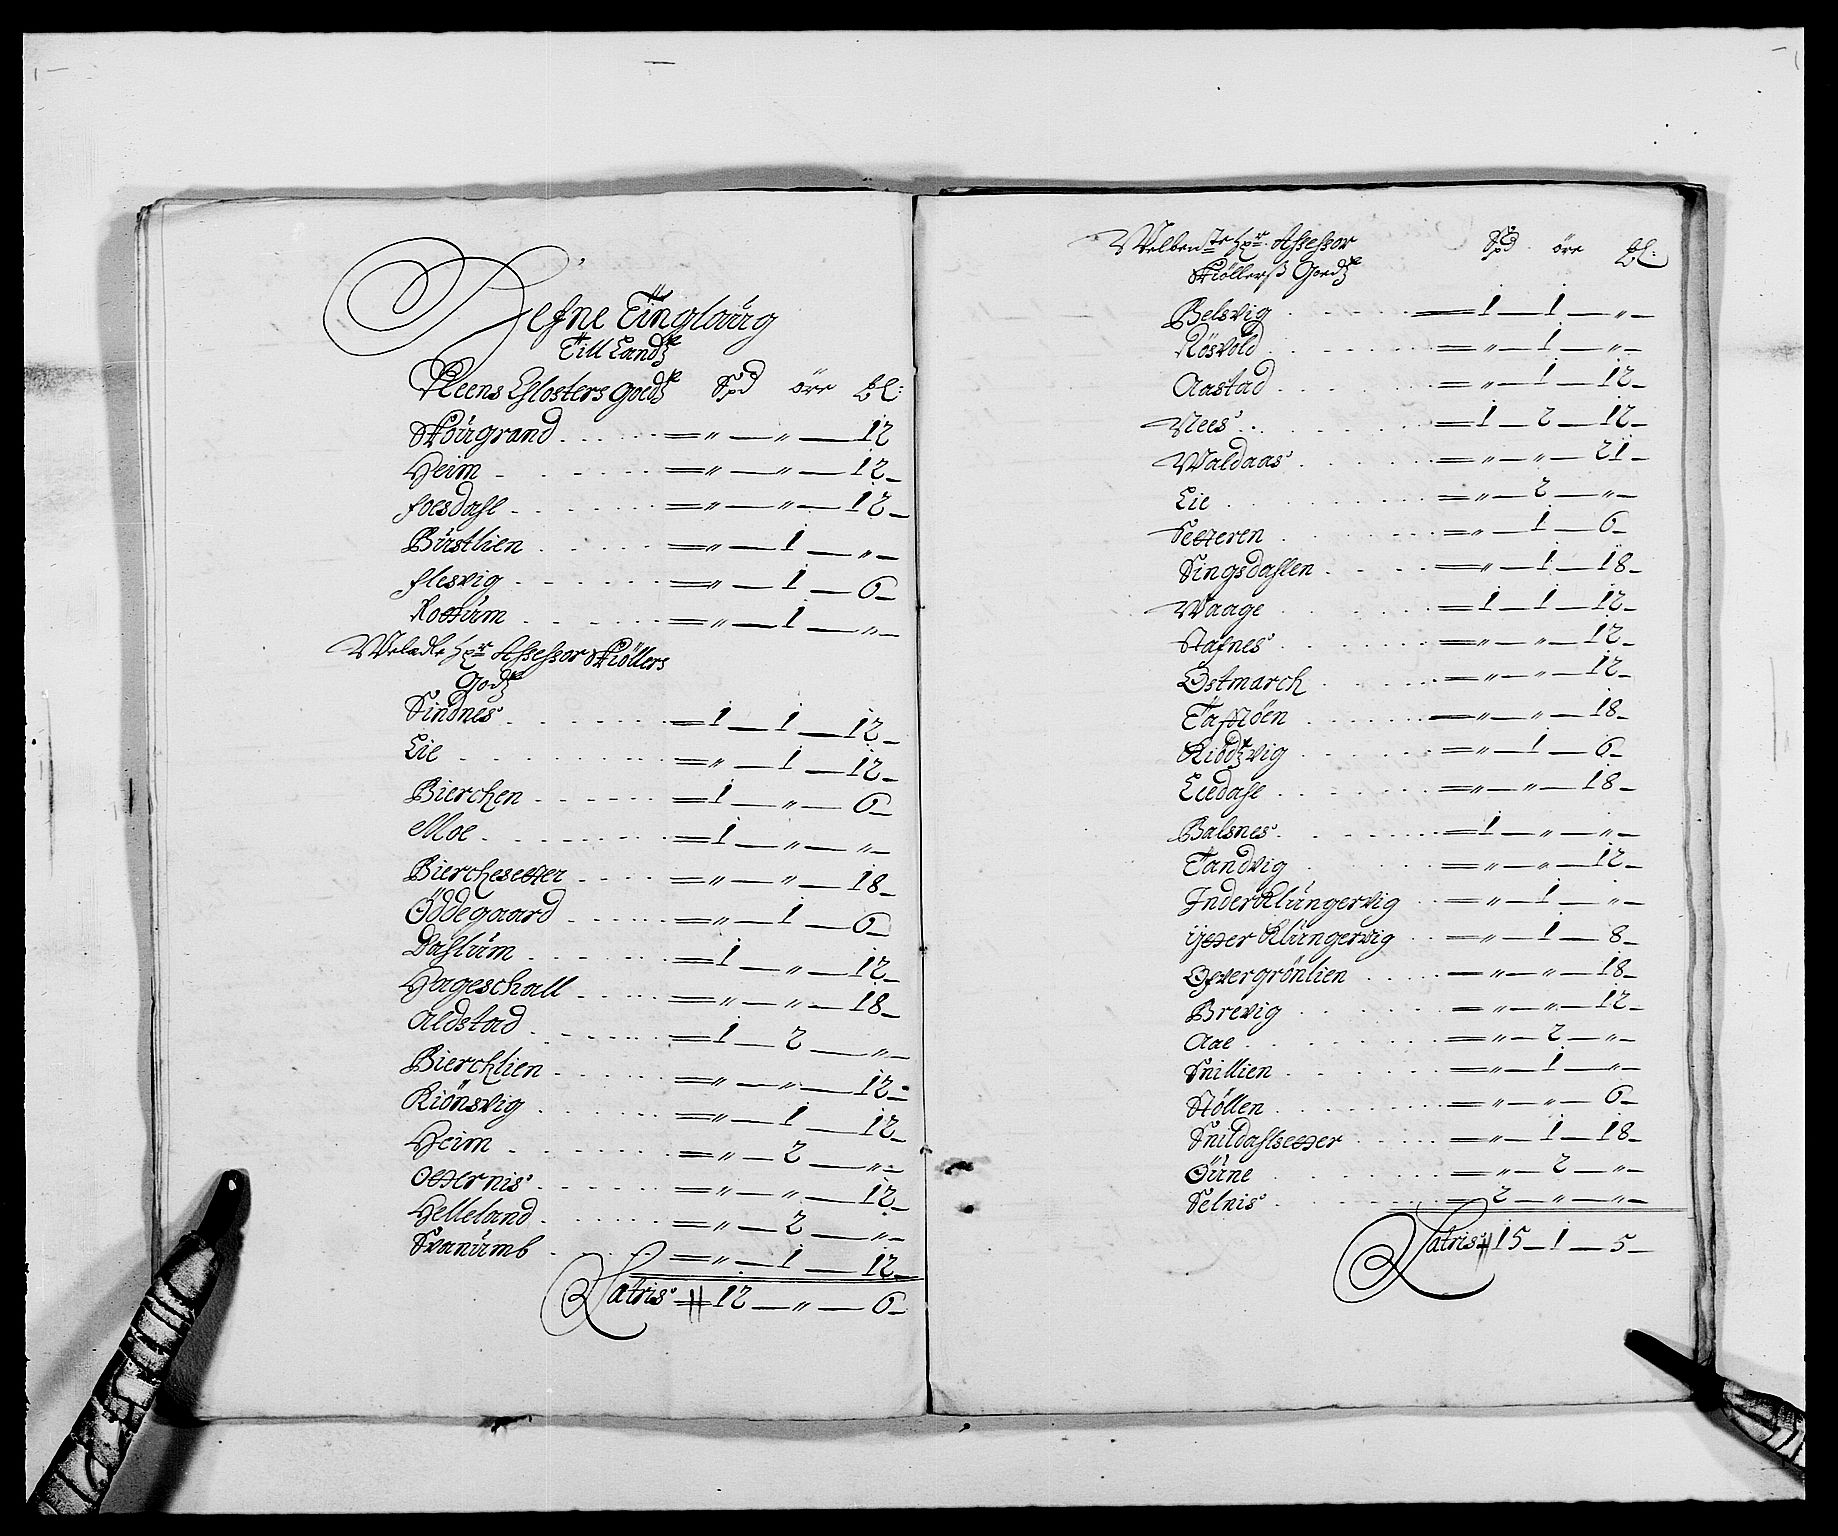 Hefne Tinglaug
Till Landz
Reens Closters goedz Spd öre bl:
Skougrand = " — " — 12
Heim = " — " — 12
foesdahl = " — " — 12
Bustlien = " — 1 — "
flesvig = " — 1 — 6
Rottum = " — 1 — "
Welædle Hr Assessor Skiöllers
Godz
Sindnes = 1 — 1 — 12
Lie = " — 1 — 12
Bierchen = 1 — " — 6
Moe = 1 — " — "
Bierchesetter = " — " — 18
Öddegaard = " — 1 — 6
Dahlum = 1 — " — 12
Hageschall = " — " — 18
Aldstad = 1 — 2 — "
Bierchlien = " — " — 12
Kiönsvig = " — 1 — 12
Heim = " — 2 — "
Otternis = " — " — 12
Helleland = " — 2 — "
Svanumb = " — 1 — 12
Latris = 12 — " — 6
Welbenste Hr. Assessor Spd öre bl:
Skiöllerß Goedz
Belsvig = 1 — 1 — "
Rösvold = " — 1 — "
Aastad = " — 1 — 12
Nees = 1 — 2 — 12
Waldaas = " — " — 21
Lie = " — 2 — "
Setteren = " — 1 — 6
Singsdahlen = " — 1 — 18
Waage = 1 — 1 — 12
Stafnes = " — " — 12
Östmarch = " — " — 12
Taftöen = " — " — 18
Kiödzvig = " — 1 — 6
Liedahl = " — " — 18
Balsnes = 1 — " — "
Tandvig = " — " — 12
Inder Klungervig = " — 1 — "
ÿtter Klungervig = " — 1 — 8
Ofvergrönlien = " — " — 18
Brevig = " — " — 12
Aae = " — 2 — "
Snillien = " — 1 — "
Stöllen = " — " — 6
Snildahlsetter = " — 1 — 18
Öüne = " — 2 — "
Selnis = 2 — " — "
Latris 15 — 1 — 5